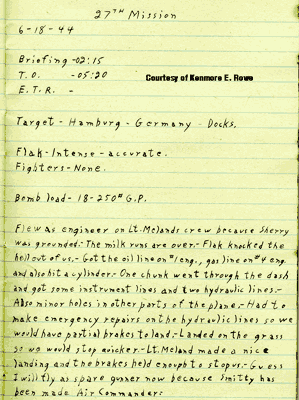 27TH Mission
6-18-44
Briefing-02:15
T.O. -05:20
Courtesy of Kenmore E. Rowe
E.T.R. -
Target-Hamburg-Germany-Docks.
Flak-Intense-accurate.
Fighters-None.
Bomb load-18-250# G.P.
Flew as engineer on Lt. Melands crew because Sherry
was grounded.-The milk runs are over.-Flak knocked the
hell out of us.-Got the oil line on #1 eng., gas line on #4 eng.
and also hit a cylinder.-One chunk went through the dash
and got some instrument lines and two hydraulic lines.-
Also minor holes in other parts of the plane.-Had to
make emergency repairs on the hydraulic lines so we
would have partial brakes to land.-Landed on the grass
so we would stop quicker.-Lt. Meland made a nice
landing and the brakes held enough to stop us.-Guess
I will fly as spare gunner now because Smitty has
been made Air Commander.